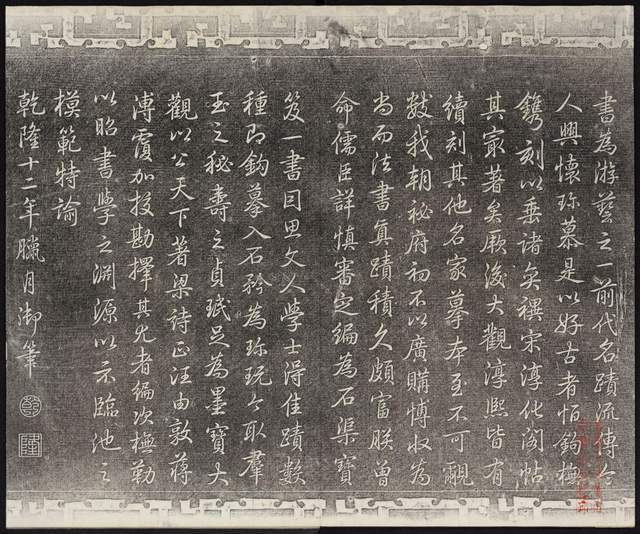 書為游藝之一前代名蹟流傳令
人興懷珎慕是以好古者恆鈎橅
鐫刻以垂諸奕禩宋淳化閣帖
其最著矣厥後大觀淳熙皆有
續刻其他名家摹本至不可覼
數我朝秘府初不以廣購博收為
尚而法書真蹟積久頗富朕曾
命儒臣詳慎審定編為石渠寶
笈一書因思文人學士得佳蹟數
種即鈎摹入石矜為珎玩今取群
玉之秘壽之貞珉足為墨寶大
觀以公天下著梁詩正汪由敦蔣
溥覆加挍勘擇其尤者編次橅勒
以昭書學之淵源以示臨池之
模範特諭
乾隆十二年臘月御筆
乾
隆